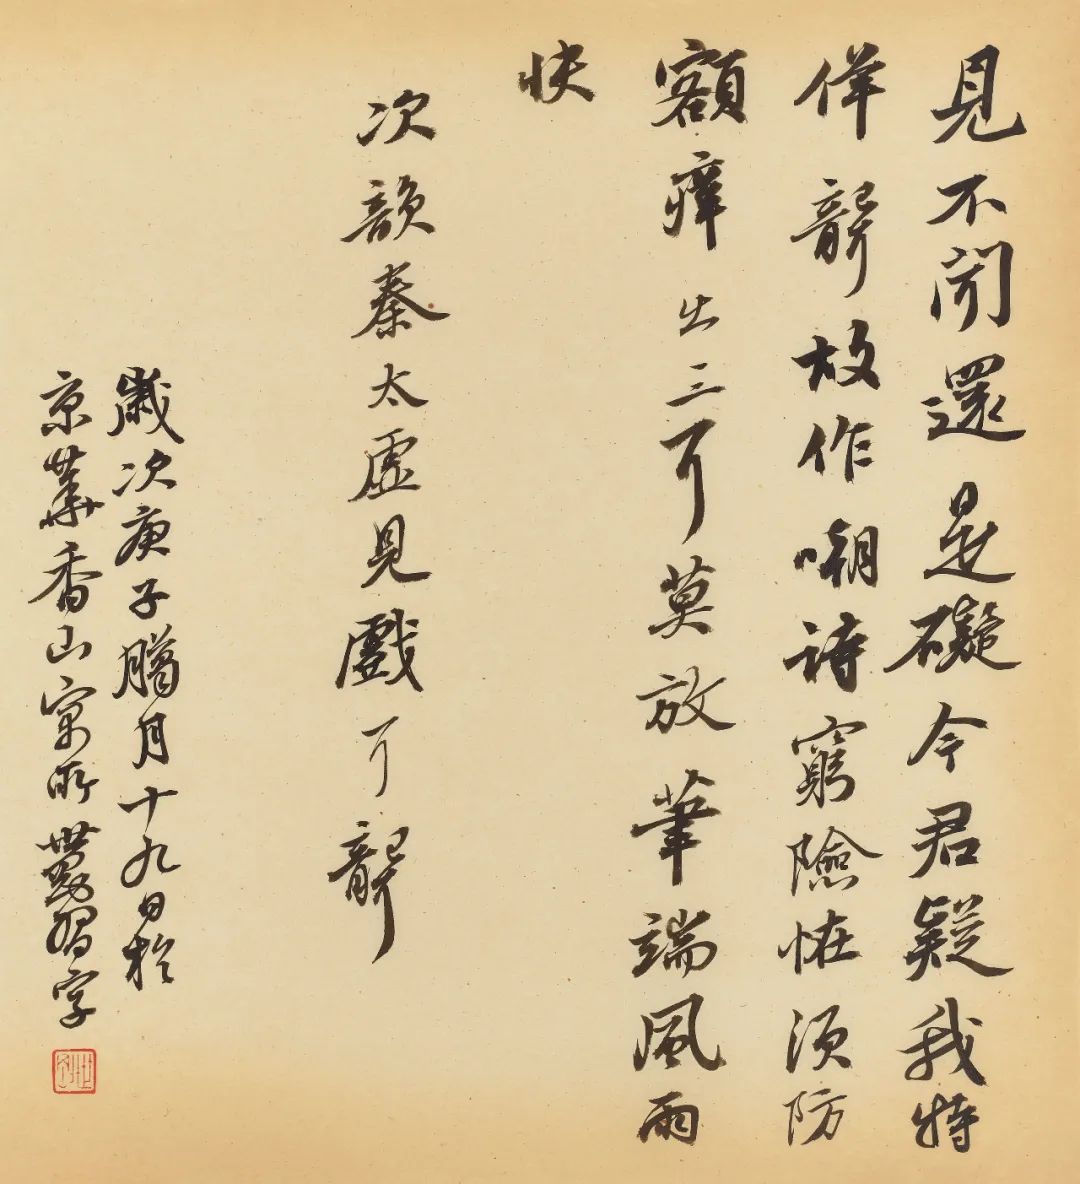 見不聞還是礙今君疑我特
佯聾故作嘲詩窮險恠須防
額癢出三耳莫放筆端風雨
快
次韻秦太虛見戲耳聾
歲次庚子臘月十九日於
京華香山寓所世習字